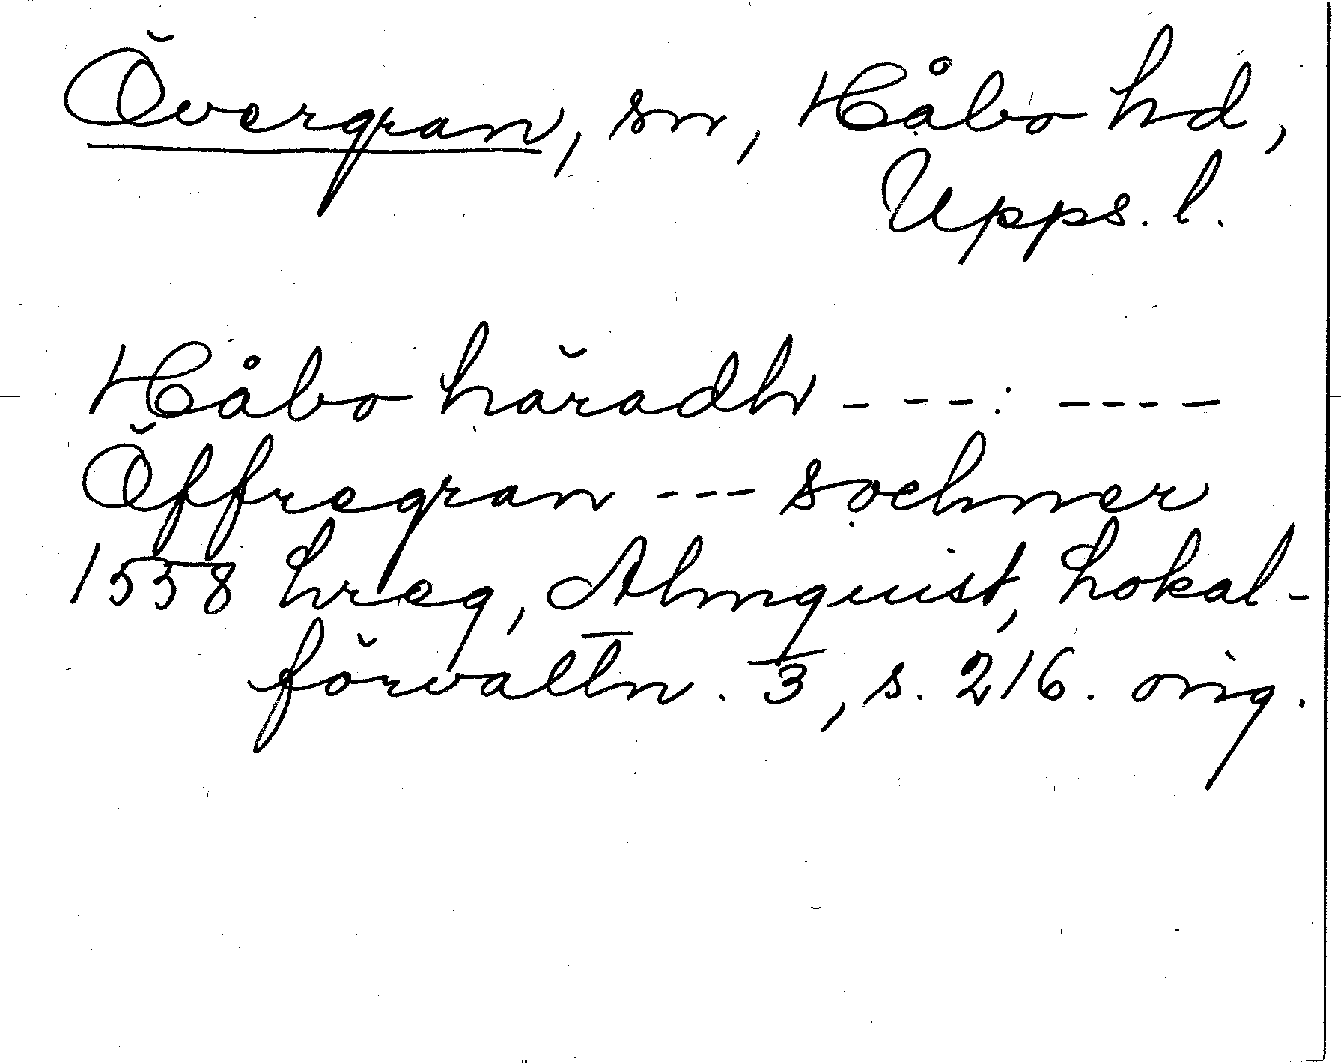 Övergran, sn, Håbo hd,
Upps. l.
Håbo häradh - - - : - - - -
Öffregran - - - sochner
1558 hreg, Almquist, Lokal-
förvaltn. 3, s. 216. orig.